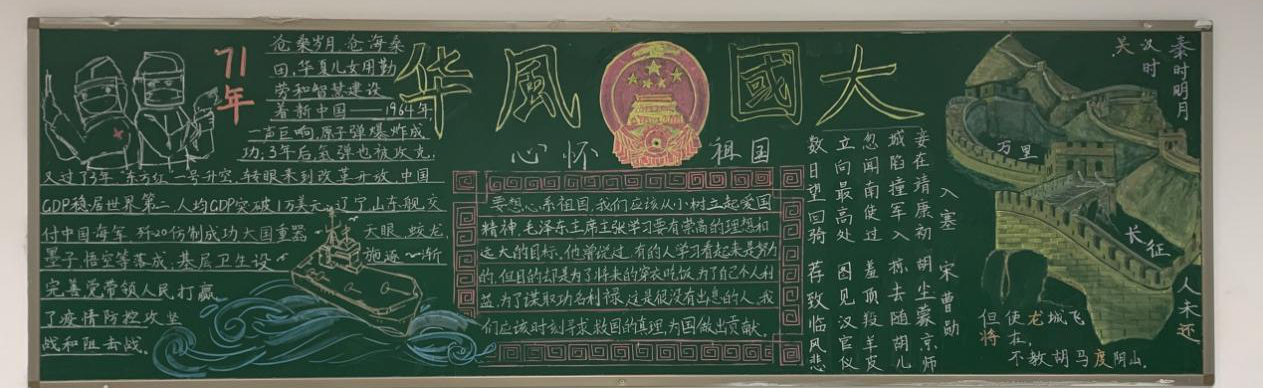 大國風华
71
年
沧桑岁月,沧海桑
田,华夏儿女用勤
劳和智慧建设
着新中国——1964年
一声巨响,原子弹爆炸成
功;3年后,氢弹也被攻克,
又过了3年"东方红"一号升空,转眼来到改革开放,中国
GDP稳居世界第二,人均GDP突破1万美元,辽宁,山东舰交
付中国海军,歼20仿制成功大国重器 天眼,蛟龙,
墨子悟空等落成;基层卫生设 施逐 渐
完善党带领人民,打赢
了疫情防控攻坚
战和阻击战。
心怀
祖国
要想心系祖国,我们应该从小树立起爱国
精神,毛泽东主席主张学习要有崇高的理想和
远大的目标,他曾说过,有的人学习看起来是努力
的,但目的却是为了将来的穿衣吃饭,为了自己个人利
益,为了谋取功名利禄,这是很没有出息的人,我
们应该时刻寻求救国的真理,为国做出贡献。
入塞 宋 曹勋
妾在靖康初 胡尘蒙京师
城陷撞军入 掠去随胡儿
忽闻南使过 羞顶羖羊皮
立向最高处 图见汉官仪
数日望回骑 荐致临风悲
秦时明月
汉时
关
万里
长征
人未还
但使龙城飞
将在,
不教胡马度阴山。